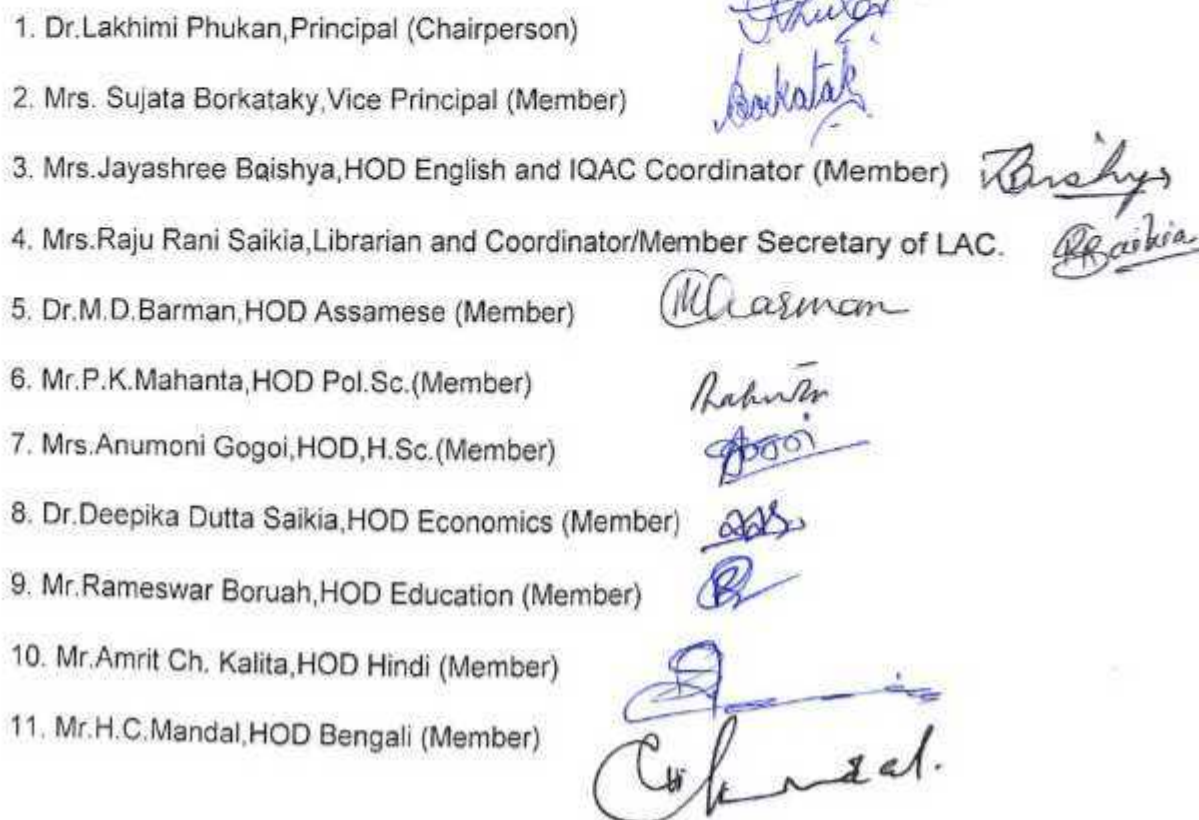 1. Dr.Lakhimi Phukan,Principal (Chairperson)
2. Mrs. Sujata Borkataky,Vice Principal (Member) Borkataky
3. Mrs.Jayashree Baishya,HOD English and IQAC Coordinator (Member) JBaishya
4. Mrs.Raju Rani Saikia,Librarian and Coordinator/Member Secretary of LAC. RRSaikia
5. Dr.M.D.Barman,HOD Assamese (Member) MDBarman
6. Mr.P.K.Mahanta,HOD Pol.Sc.(Member)
7. Mrs.Anumoni Gogoi,HOD,H.Sc.(Member)
8. Dr.Deepika Dutta Saikia,HOD Economics (Member)
9. Mr.Rameswar Boruah,HOD Education (Member)
10. Mr.Amrit Ch. Kalita,HOD Hindi (Member)
11. Mr.H.C.Mandal,HOD Bengali (Member)